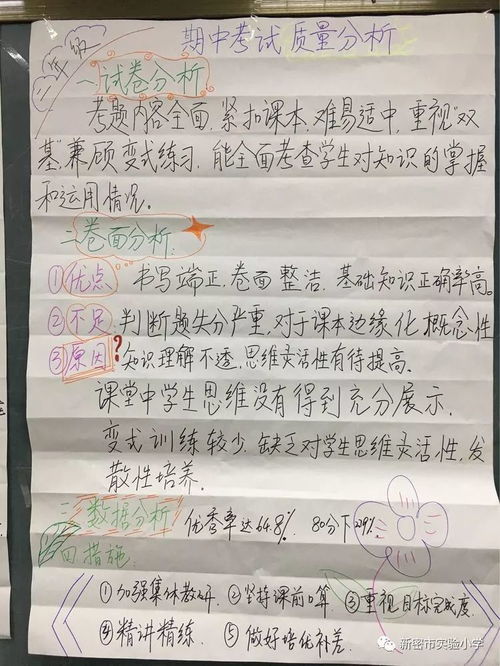 二年级
期中考试质量分析
一 试卷分析
考题内容全面,紧扣课本,难易适中,重视"双
基"兼顾变式练习,能全面考查学生对知识的掌握
和运用情况。
二.卷面分析:
①优点 书写端正.卷面整洁.基础知识正确率高。
②不足 判断题失分严重.对于课本边缘化概念性
③原因?知识理解不透.思维灵活性有待提高.
课堂中学生思维没有得到充分展示.
变式训练较少.缺乏对学生思维灵活性,发
散性培养.
三 数据分析 优秀率达64.8% 80分下29%
四 措施
①加强集体教研.②坚持课前口算.③重视目标完成度.
④精讲精练. ⑤做好培优补差.
新密市实验小学